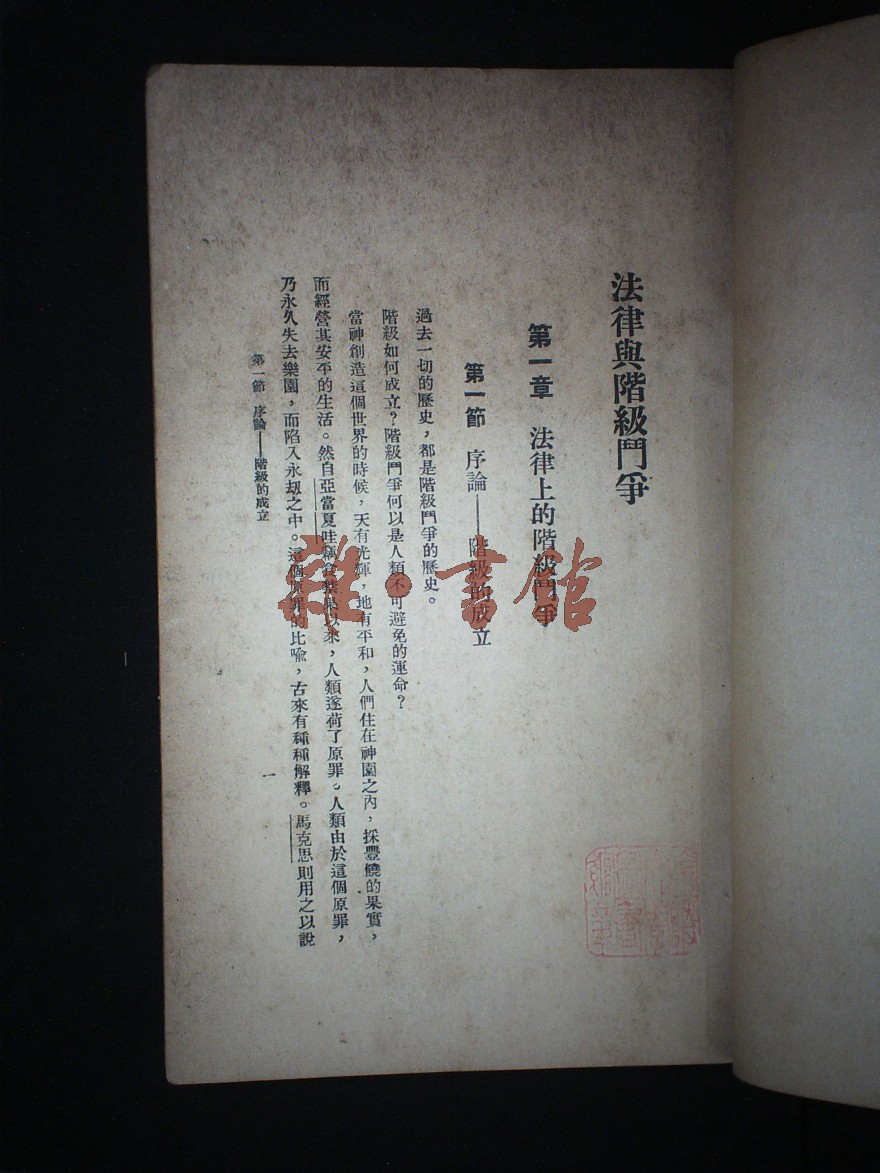 法律與階級鬥爭
第一章 法律上的階級鬥爭
第一節 序論——階級的成立
過去一切的歷史，都是階級鬥爭的歷史。
階級如何成立？階級鬥爭何以是人類不可避免的運命？
當神創造這個世界的時候，天有光輝，地有平和，人們住在神園之內，採豐饒的果實，
而經營其安平的生活。然自亞當夏哇竊食禁果以來，人類遂荷了原罪。人類由於這個原罪，
乃永久失去樂園，而陷入永刼之中。這個原罪的比喻，古來有種種解釋。馬克思則用之以說
第一節 序論——階級的成立
一
雜·書館